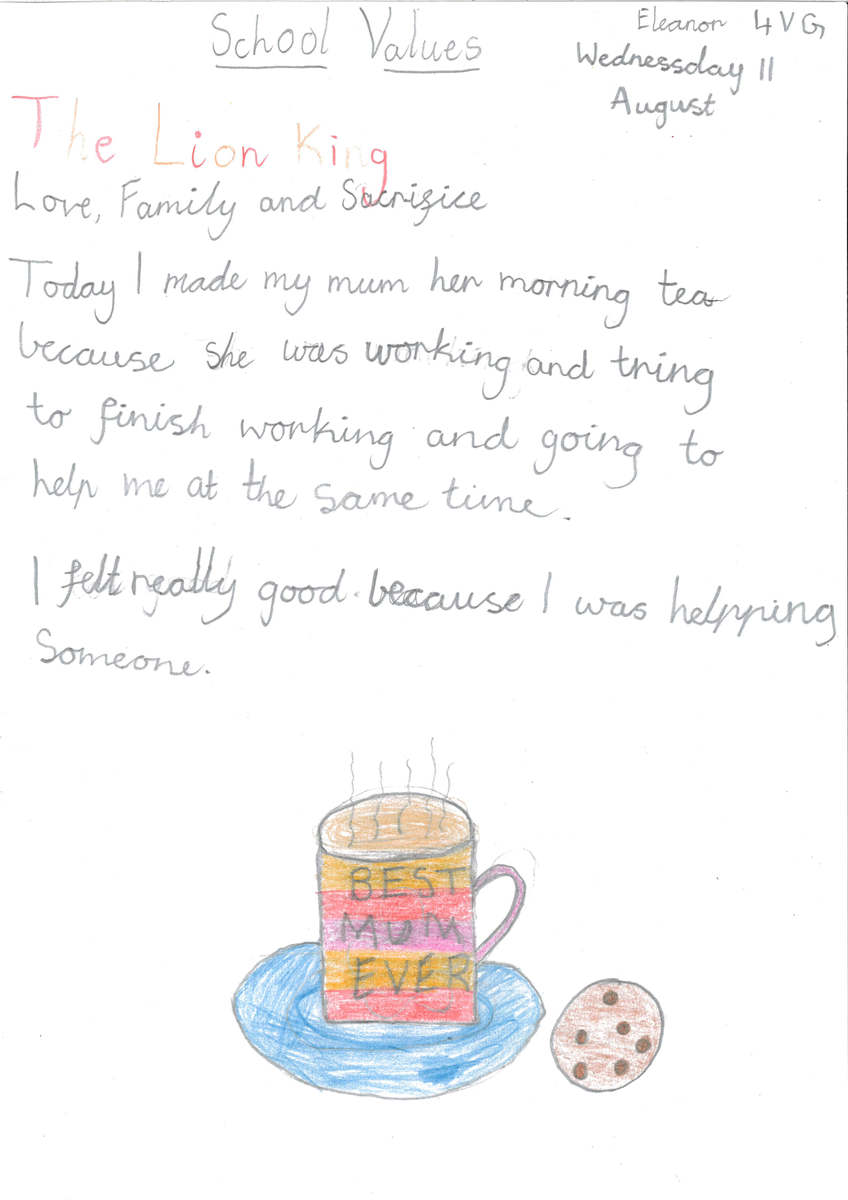 School Values
Eleanor 4VG
Wednessday 11
August
The Lion King
Love, Family and Sacrifice
Today I made my mum her morning tea
because she was working and tring
to finish working and going to
help me at the same time.
I felt really good because I was helpping
someone.
BEST
MUM
EVER